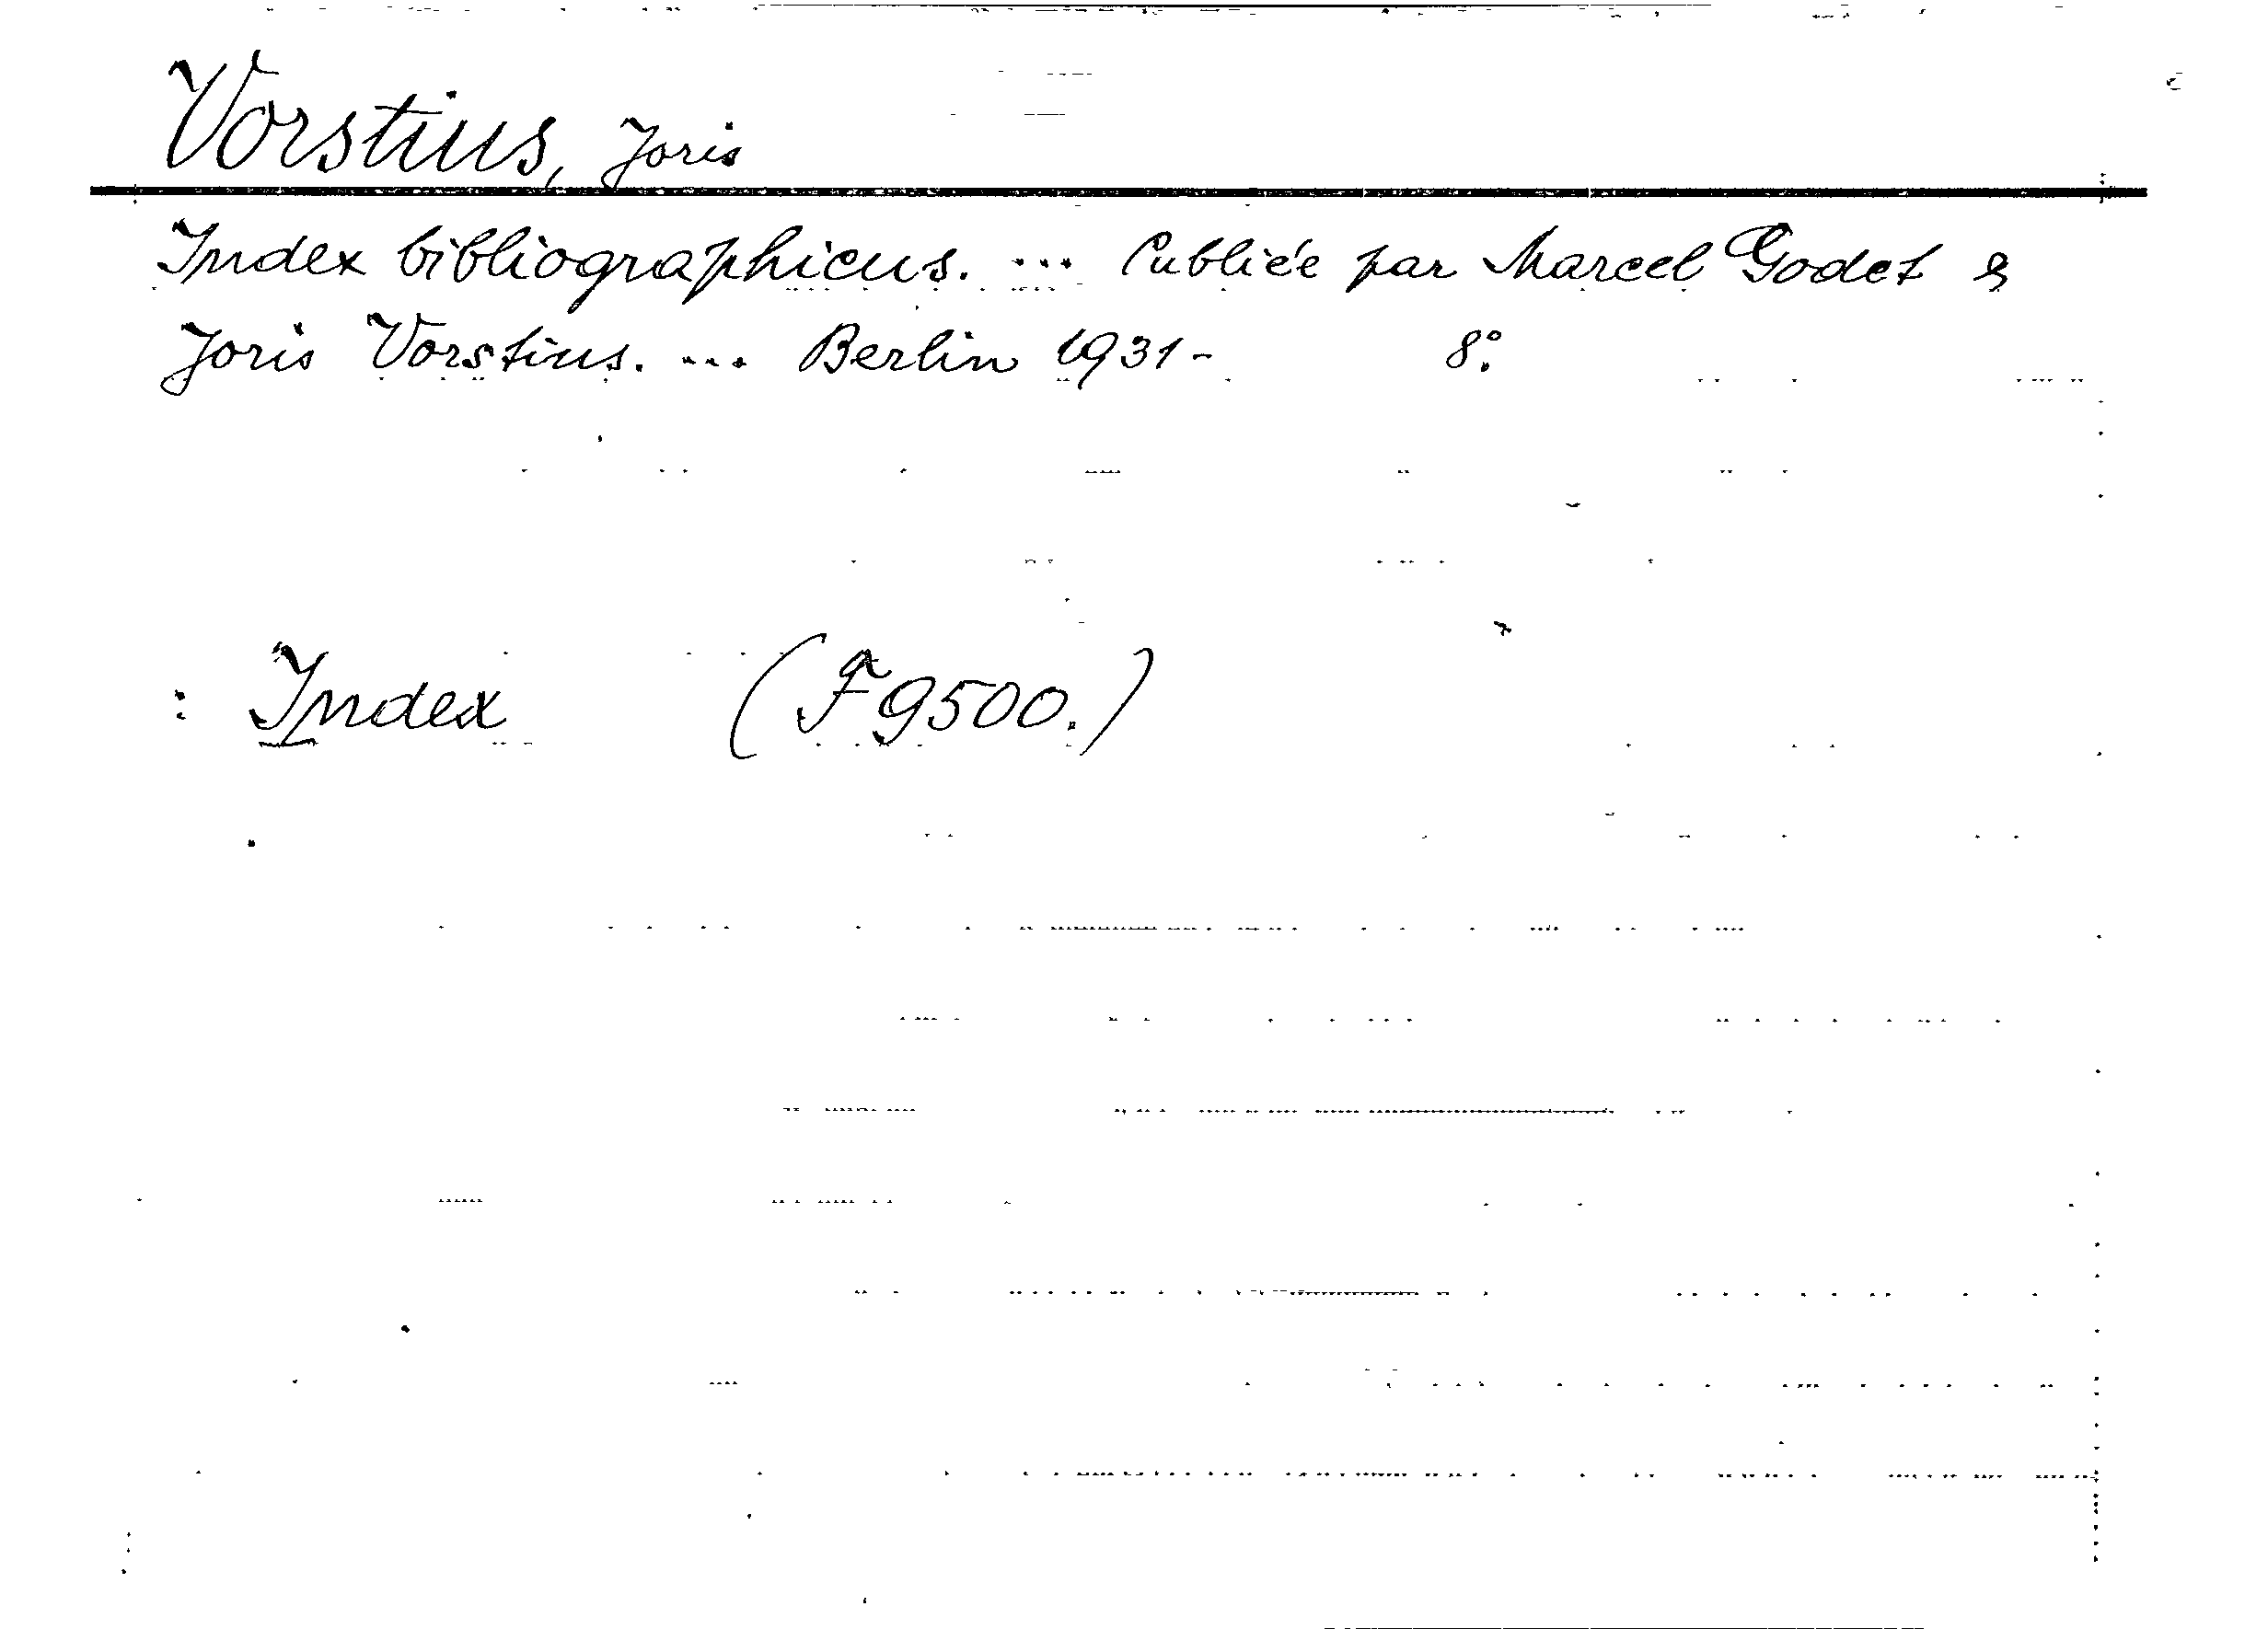 Vorstius, Joris
Index bibliographicus. ... Publiée par Marcel Godet &
Joris Vorstius. ... Berlin 1931- 8:o
: Index (F9500.)